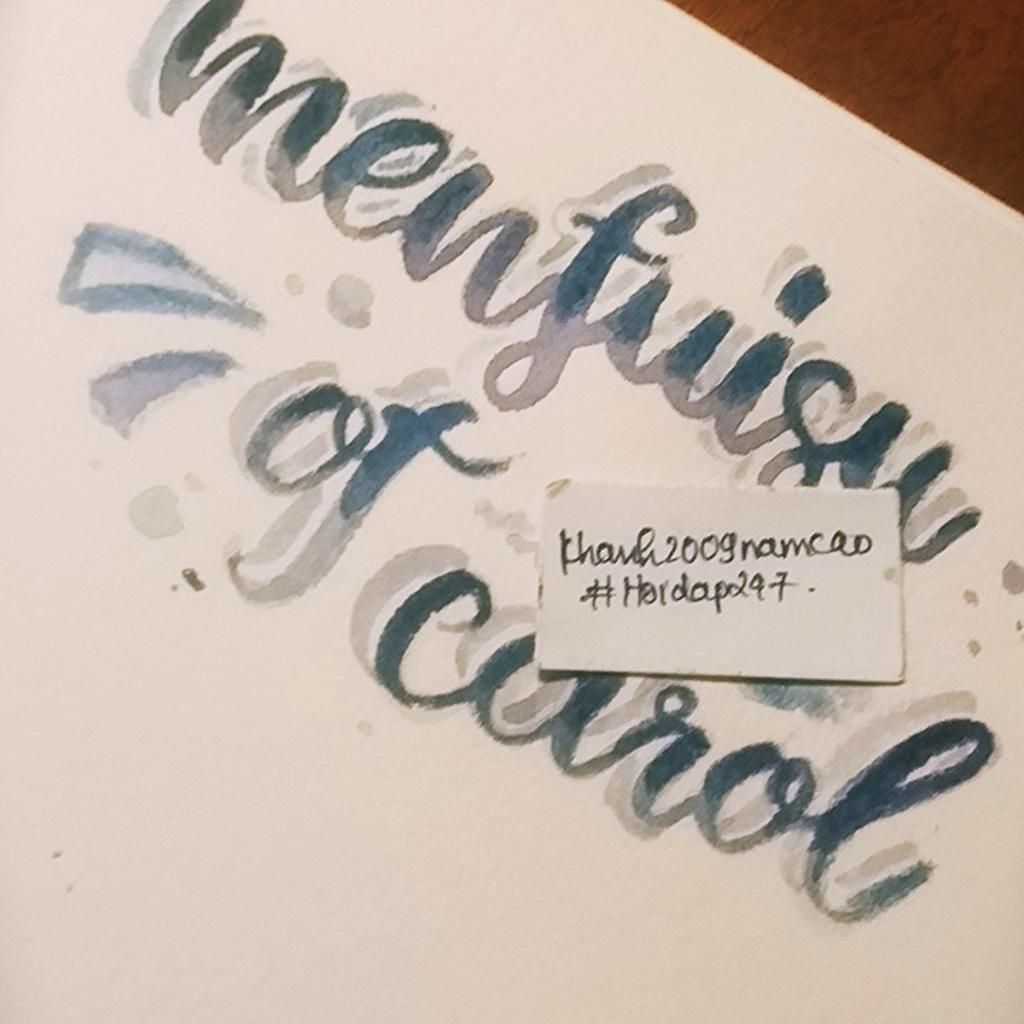 menfuisu
or
carol
khanh2009namcao
#Hoidap247.